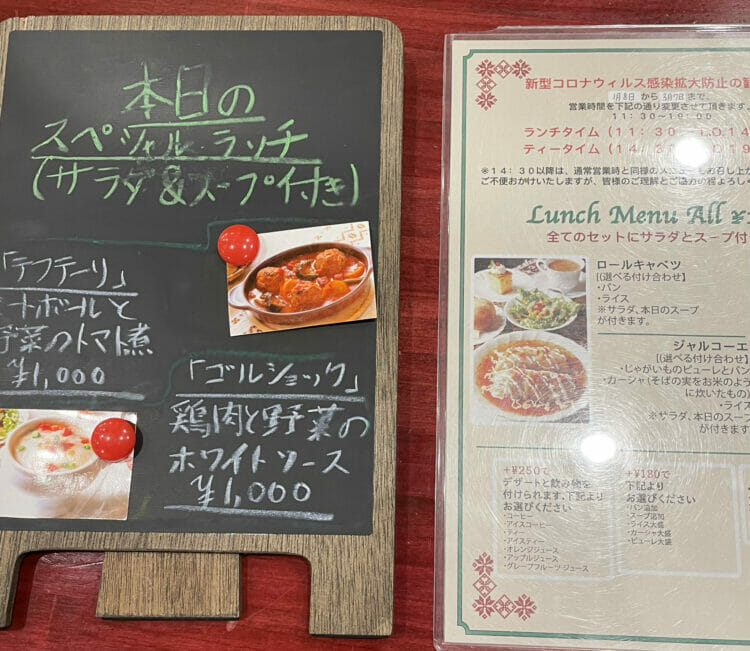 本日の
スペシャルランチ
(サラダ&スープ付き)
「テフテーリ」
ートボールと
野菜のトマト煮
¥1,000
「ゴルショック」
鶏肉と野菜の
ホワイトソース
¥1,000
新型コロナウィルス感染拡大防止の
1月8日 から 3月7日 まで、
営業時間を下記の通り変更させて頂きます
11:30-19:00
ランチタイム(11:30 -LO14
ティータイム(14:30 -LO19
※14:30以降は、通常営業時と同様の
ご不便おかけいたしますが、皆様のご理解とご協力の程よろし
Lunch Menu All ¥
全てのセットにサラダとスープ付
ロールキャベツ
[(選べる付け合わせ】
・パン
・ライス
※サラダ、本日のスープ
が付きます。
ジャルコーエ
[(選べる付け合わせ】
・じゃがいものピューレとパン
・カーシャ(そばの実をお米のよう
に炊いたもの)
・ライ
※サラダ、本日のスープ
が付きます
+¥250で
デザートと飲み物を
付けられます、下記より
お選びください
・コーヒー
・アイスコーヒー
・ティー
・アイスティー
・オレンジジュース
・アップルジュース
・グレープフルーツジュース
+¥180で
下記より
お選びください
・パン追加
・スープ追加
・ライス大盛
・カーシャ大盛
・ピューレ大盛